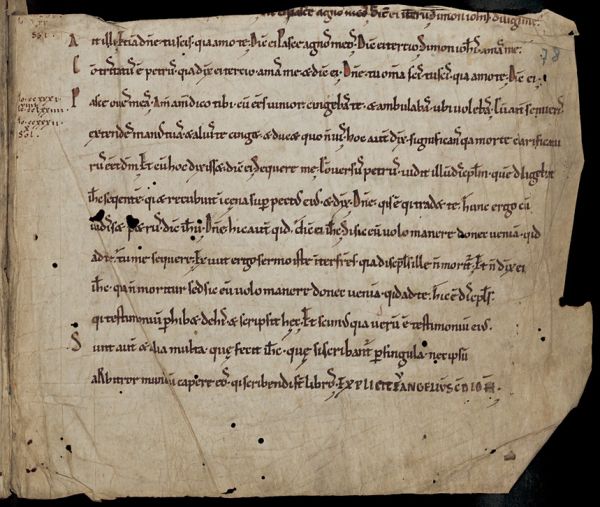 ei pasce agnos meoſ. Dič ei iterū ſimon iohiſ diligiſ me.
A it illi. Etiā dn̄e tu ſciſ. quia amo te. Dič ei Paſce agnoſ meoſ. Dič ei tercio. Simon ioh̄iſ amaſ me.
C ōtriſtatuſ ē petruſ. quia dix̄ ei tercio. amaſ me. & dič ei. Dn̄e. tu om̄ia ſciſ. tu ſciſ quia amo te. Dič ei.
P aſce oueſ meaſ. Am̄ am̄ dico tibi. cū eēſ iunior. cingebaſ te. & ambulabaſ. ubi uolebaſ. Cū aut̄ ſenueriſ.
extendeſ manuſ tuaſ. & aliuſ te cinget. & ducet quo n̄ uiſ. hoc aut̄ dix̄. ſignificanſ qua morte clarificatu
ruſ eēt dm̄. Et cū hoc dixiſſet. dič ei. Sequere me. Conuerſuſ petruſ. uidit illū diſcip̄lm̄. quē diligebat
ih̄c ſequentē. qui & recubuit ī cena ſup̄ pectuſ eiuſ. & dix̄. Dn̄e. quiſ ē qui tradet te. hunc ergo cū
uidiſſet petruſ. dič ih̄u. Dn̄e. hic aut̄ quid. dič ei ih̄c. Si ſic eū uolo manere donec ueniā. quid
ad te. tu me ſequere. Exiuit ergo ſermo iſte īter fr̄eſ. quia diſcip̄lſ ille n̄ morit̄. Et n̄ dix̄ ei
ih̄c. quia n̄ moritur. ſed ſic eū uolo manere donec ueniā. quid ad te. hic ē diſcip̄lſ.
qui teſtimoniū p̄hibet de hiſ. & ſcripſit hęc. Et ſcimuſ quia uerū ē teſtimoniū eiuſ.
S unt aut̄ & alia multa. quę fecit ih̄c. quę ſi ſcribant̄ p̄ ſingula. nec ipſū
arbitror mundū capere eoſ. qui ſcribendi ſt̄ libroſ. EXPLICIT EVANGELIVM SC̄DM IOHM̄.